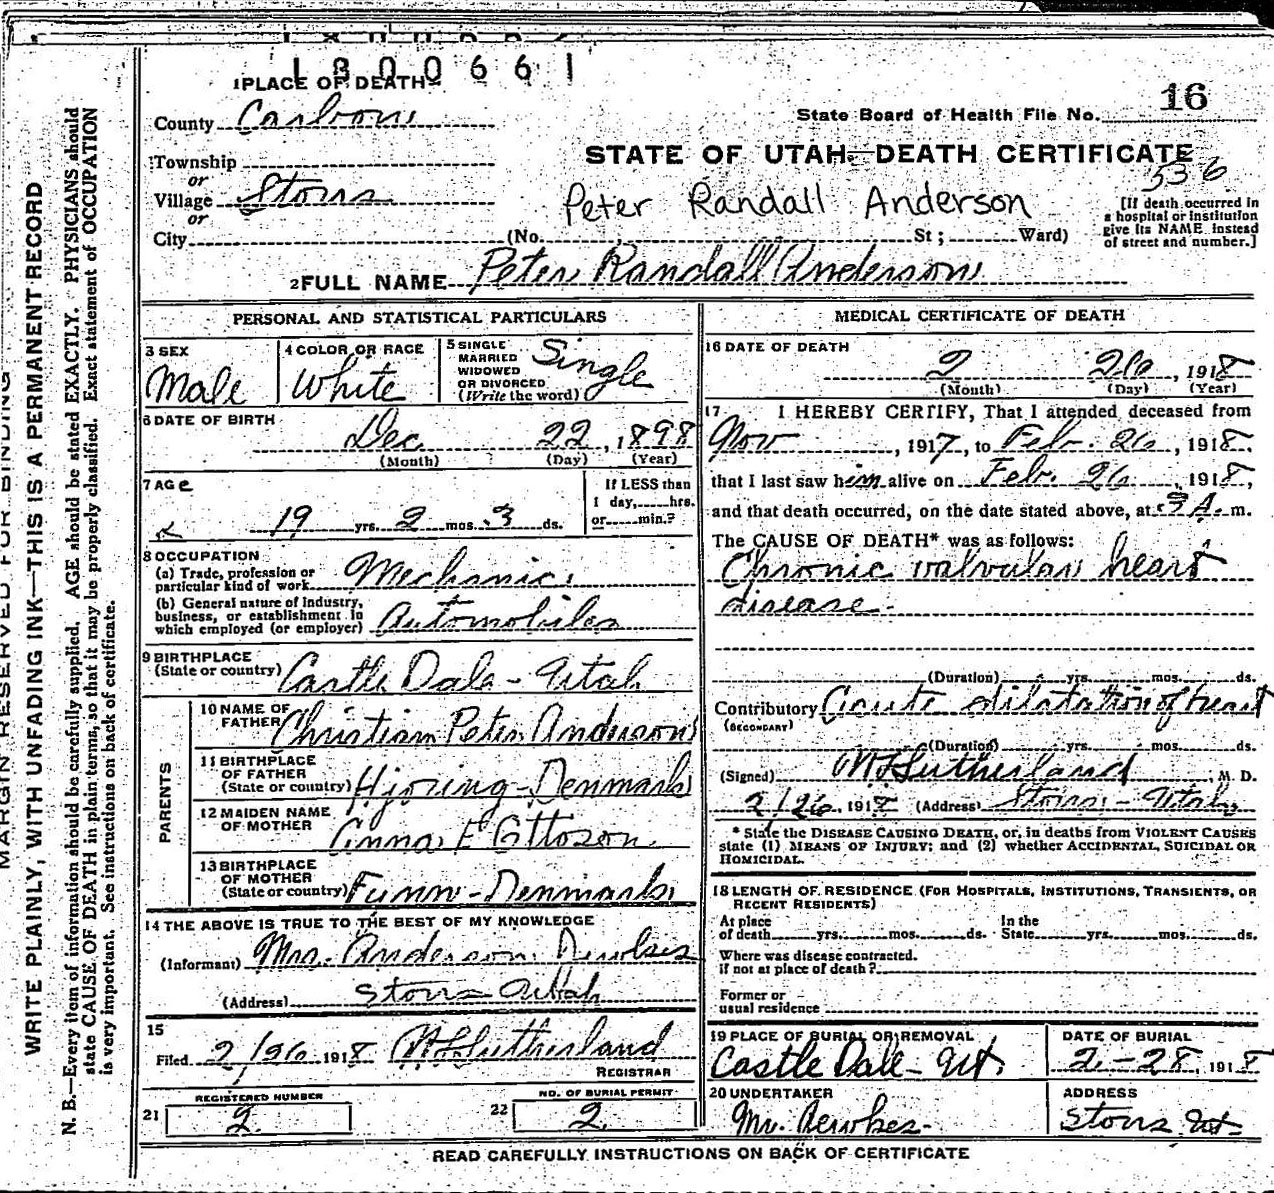 1800661
1 PLACE OF DEATH
County Carbon
State Board of Health File No. 16
Township
or
STATE OF UTAH—DEATH CERTIFICATE
536
Village Storrs
or
Peter Randall Anderson
City (No. St; Ward)
[If death occurred in
a hospital or institution
give its NAME instead
of street and number.]
2 FULL NAME Peter Randall Anderson
PERSONAL AND STATISTICAL PARTICULARS
3 SEX
Male
4 COLOR OR RACE
White
5 SINGLE
MARRIED
WIDOWED
OR DIVORCED
(Write the word)
Single
6 DATE OF BIRTH
Dec 22, 1898
(Month) (Day) (Year)
7 AGE
19 yrs. 2 mos. 3 ds.
If LESS than
1 day, hrs.
or min.?
8 OCCUPATION
(a) Trade, profession or
particular kind of work Mechanic
(b) General nature of industry,
business, or establishment in
which employed (or employer) Automobiles
9 BIRTHPLACE
(State or country) Castle Dale - Utah
PARENTS
10 NAME OF
FATHER Christian Peter Anderson
11 BIRTHPLACE
OF FATHER
(State or country) Hjoring - Denmark
12 MAIDEN NAME
OF MOTHER Anna E Ottoson
13 BIRTHPLACE
OF MOTHER
(State or country) - Denmark
14 THE ABOVE IS TRUE TO THE BEST OF MY KNOWLEDGE
(Informant) Mrs. Anderson
(Address) Storrs Utah
15
Filed 2/26 1918 Sutherland
REGISTRAR
21 REGISTERED NUMBER
2
22 NO. OF BURIAL PERMIT
2
MEDICAL CERTIFICATE OF DEATH
16 DATE OF DEATH
2 26, 1918
(Month) (Day) (Year)
17 I HEREBY CERTIFY, That I attended deceased from
Nov, 1917, to Feb. 26, 1918,
that I last saw him alive on Feb. 26, 1918,
and that death occurred, on the date stated above, at 9 A. m.
The CAUSE OF DEATH* was as follows:
Chronic valvular heart
disease.
(Duration) yrs. mos. ds.
Contributory Acute dilatation of heart
(SECONDARY)
(Duration) yrs. mos. ds.
(Signed) Sutherland, M. D.
2/26, 1918 (Address) Storrs, - Utah,
* State the DISEASE CAUSING DEATH, or, in deaths from VIOLENT CAUSES
state (1) MEANS OF INJURY; and (2) whether ACCIDENTAL, SUICIDAL OR
HOMICIDAL.
18 LENGTH OF RESIDENCE (FOR HOSPITALS, INSTITUTIONS, TRANSIENTS, OR
RECENT RESIDENTS)
At place
of death yrs. mos. ds.
In the
State yrs. mos. ds.
Where was disease contracted.
if not at place of death?
Former or
usual residence
19 PLACE OF BURIAL OR REMOVAL
Castle Dale - Ut.
DATE OF BURIAL
2 - 28, 1918
20 UNDERTAKER
Mr.
ADDRESS
Storrs, Ut
READ CAREFULLY INSTRUCTIONS ON BACK OF CERTIFICATE
MARGIN RESERVED FOR BINDING
WRITE PLAINLY, WITH UNFADING INK—THIS IS A PERMANENT RECORD
N. B.—Every item of information should be carefully supplied. AGE should be stated EXACTLY. PHYSICIANS should
state CAUSE OF DEATH in plain terms, so that it may be properly classified. Exact statement of OCCUPATION
is very important. See instructions on back of certificate.